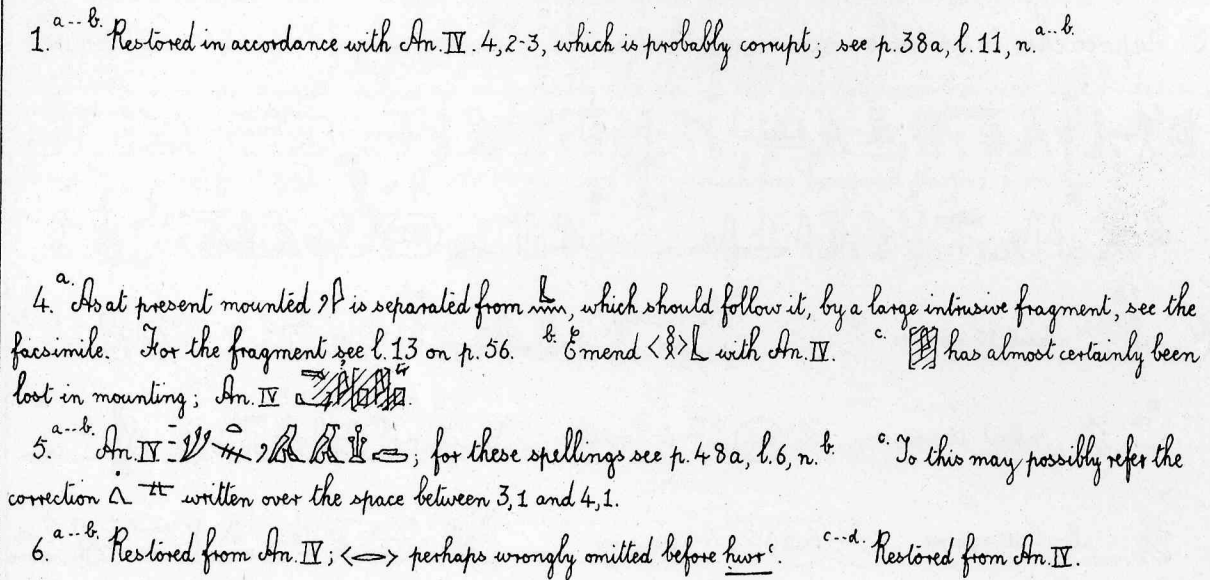 1. a--b. Restored in accordance with An. IV. 4, 2-3, which is probably corrupt; see p. 38a, l. 11, n. a--b.
4. a. As at present mounted is separated from , which should follow it, by a large intrusive fragment, see the
facsimile. For the fragment see l. 13 on p. 56. b. Emend <𓎛>𓃀 with An. IV. c. has almost certainly been
lost in mounting; An. IV
5. a--b. An. IV ; for these spellings see p. 48a, l. 6, n. b. c. To this may possibly refer the
correction written over the space between 3,1 and 4,1.
6. a--b. Restored from An. IV; <𓂋> perhaps wrongly omitted before hwrꜥ. c--d. Restored from An. IV.